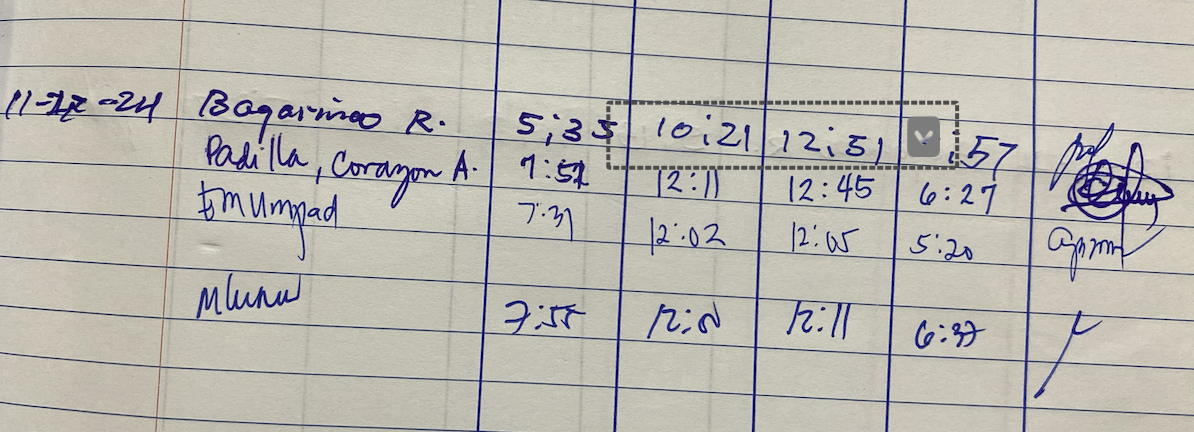 11-12-24 Bagarinao R. 5:35 10:21 12:51 :57
Padilla, Corazon A. 7:52 12:11 12:45 6:27
7:31 12:02 12:05 5:20
7:55 12:11 6:37